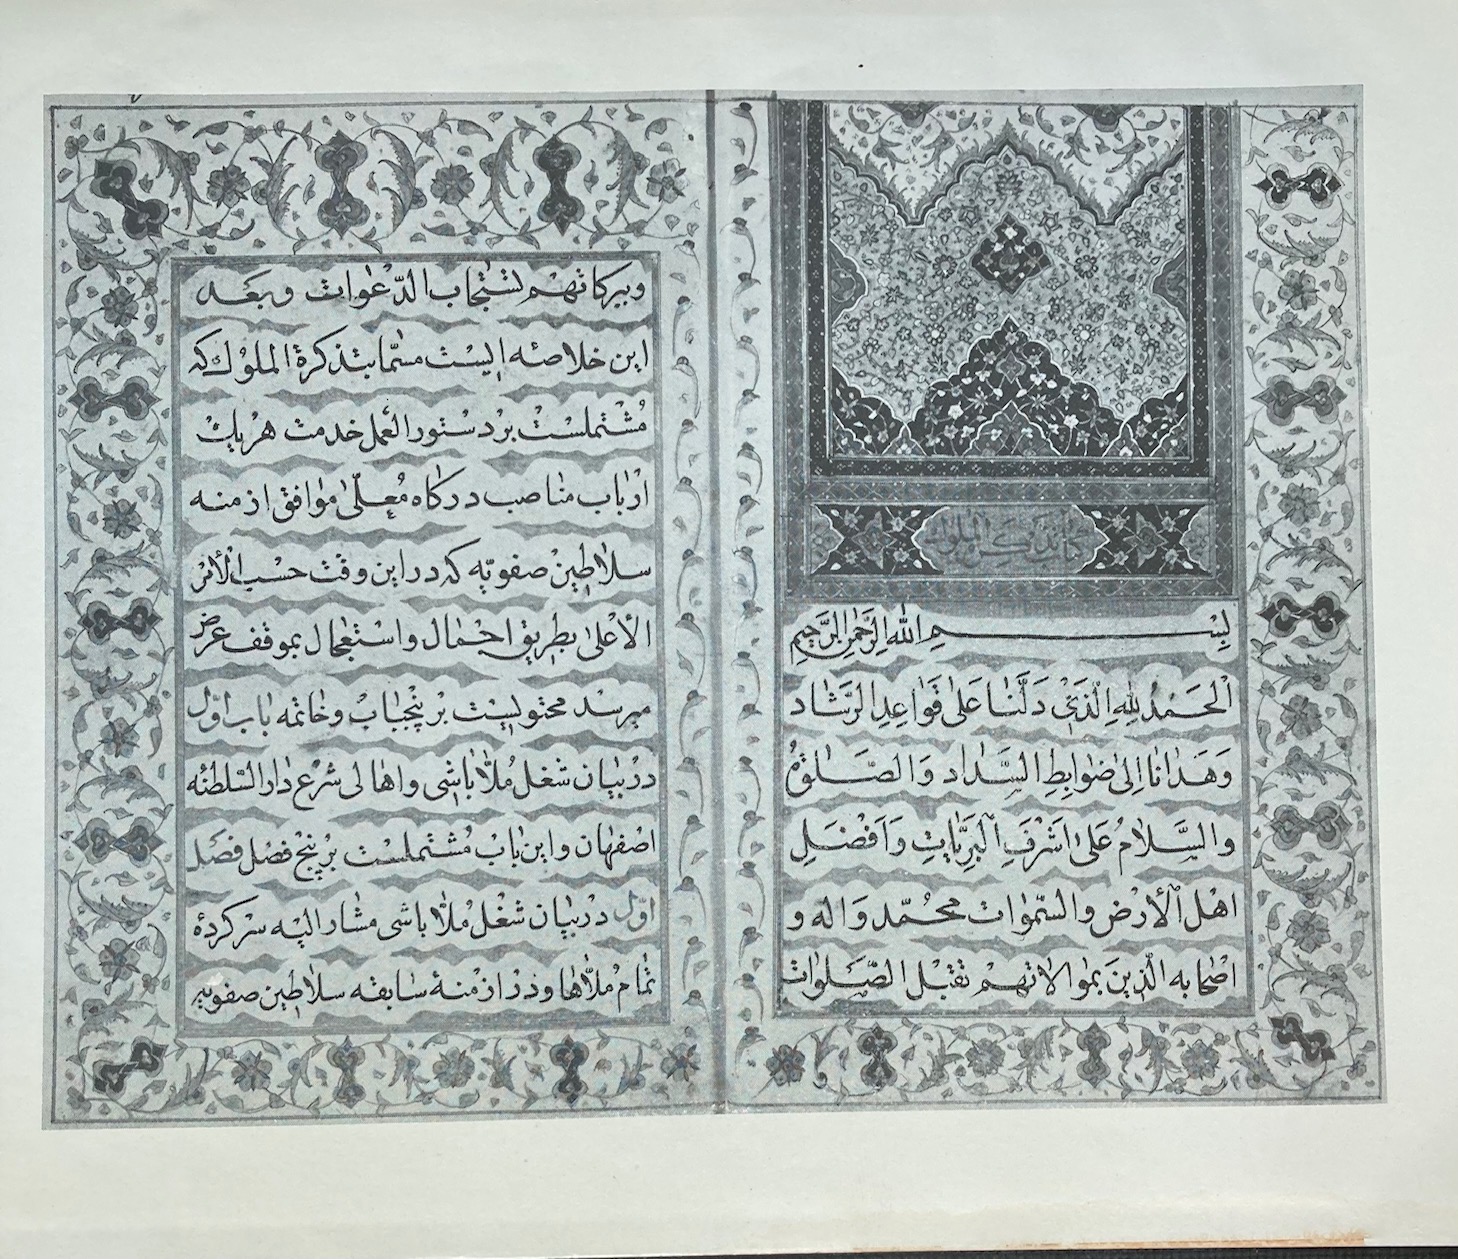 كتاب تذكرة الملوك
بِسْمِ اللّٰهِ الرَّحْمٰنِ الرَّحِيمِ
اَلْحَمْدُ لِلّٰهِ الَّذِيْ دَلَّنَا عَلىٰ قَوَاعِدِ الرَّشَادِ
وَهَدَانَا اِلىٰ ضَوَابِطِ السَّدَادِ وَالصَّلٰوةُ
وَالسَّلَامُ عَلىٰ اَشْرَفِ الْبَرِيَّاتِ وَاَفْضَلِ
اهْلِ الْاَرْضِ وَالسَّمٰوَاتِ مُحَمَّدٍ وَاٰلِهٖ وَ
اصْحَابِهِ الَّذِينَ بِمُوالاتِهِمْ تُقْبَلُ الصَّلَوَاتُ
وببركاتهم تستجاب الدّعوات وبعد
اين خلاصه ايست مسمّا بتذكرة الملوك كه
مُشْتملست بر دستور العمل خدمت هر يك
ارباب مناصب دركاه مُعلّىٰ موافق ازمنه
سلاطين صفويّه كه در اين وقت حسب الأمر
الأعلىٰ بطريق اجمال و استعجال بموقف عرض
ميرسد محتويست بر پنجباب و خاتمه باب اوّل
در بيان شغل مُلّاباشى و اهالى شرع دار السّلطنه
اصفهان و اين باب مُشتملست بر پنج فصل فصل
اوّل در بيان شغل مُلّاباشى مشار اليه سركردهٔ
تمام مُلّاها و در ازمنهٔ سابقه سلاطين صفويه